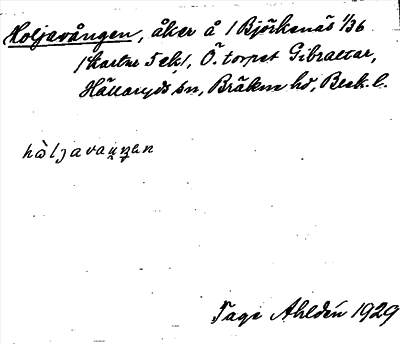 Holjavången, åker å / Björkenäs 1/36
/ Karlur 5 ek/, Ö. torpet Gibraltar,
Hällaryds sn, Bräkne hd, Blek. l.
hòljavaŋ̣ən
Tage Ahldén 1929